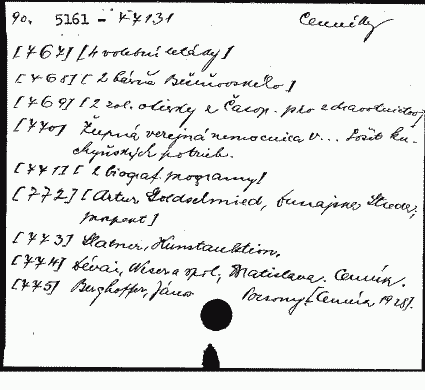 90. 5161 - 77131 Cenníky
[767] [4 volební letáky]
[768] [2 básně Bčičovského]
[769] [2 zol. otisky z Časop. pro zdravotnictvo]
[770] Župná verejná nemocnica v... Sošit ku-
chyňských potrieb.
[771] [2 biograf. programy]
[772] [Artur Goldschmied, Dunajská Streda,
prospekt]
[773] Slatner, Kunstauktion.
[774] Dévai, Weser a spol., Bratislava. Cenník.
[775] Berghoffer, János Pozsony. [Cenník 1928].